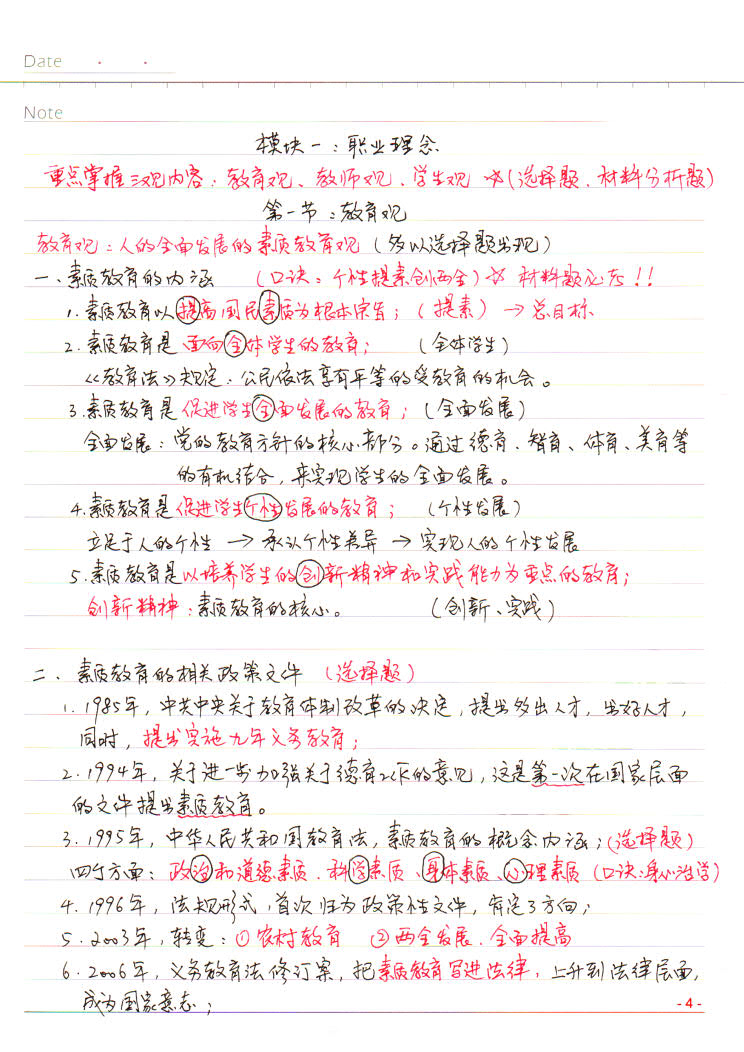 Date · ·
Note
模块一：职业理念
重点掌握三观内容：教育观、教师观、学生观 ☆(选择题、材料分析题)
第一节：教育观
教育观：人的全面发展的素质教育观（多以选择题出现）
一、素质教育的内涵 （口诀：个性提素创两全）☆ 材料题必考!!
1.素质教育以提高国民素质为根本宗旨；（提素）→总目标
2.素质教育是面向全体学生的教育；（全体学生）
《教育法》规定：公民依法享有平等的受教育的机会。
3.素质教育是促进学生全面发展的教育；（全面发展）
全面发展：党的教育方针的核心部分。通过德育、智育、体育、美育等
的有机结合，来实现学生的全面发展。
4.素质教育是促进学生个性发展的教育；（个性发展）
立足于人的个性→承认个性差异→实现人的个性发展
5.素质教育是以培养学生的创新精神和实践能力为重点的教育；
创新精神：素质教育的核心。（创新、实践）
二、素质教育的相关政策文件（选择题）
1.1985年，中共中央关于教育体制改革的决定，提出多出人才，出好人才，
同时，提出实施九年义务教育；
2.1994年，关于进一步加强关于德育工作的意见，这是第一次在国家层面
的文件提出素质教育。
3.1995年，中华人民共和国教育法，素质教育的概念内涵；(选择题)
四个方面：政治和道德素质、科学素质、身体素质、心理素质（口诀：身心治学）
4.1996年，法规形式，首次归为政策性文件，肯定3方向；
5.2003年，转变：①农村教育 ②两全发展、全面提高
6.2006年，义务教育法修订案，把素质教育写进法律，上升到法律层面，
成为国家意志；
-4-